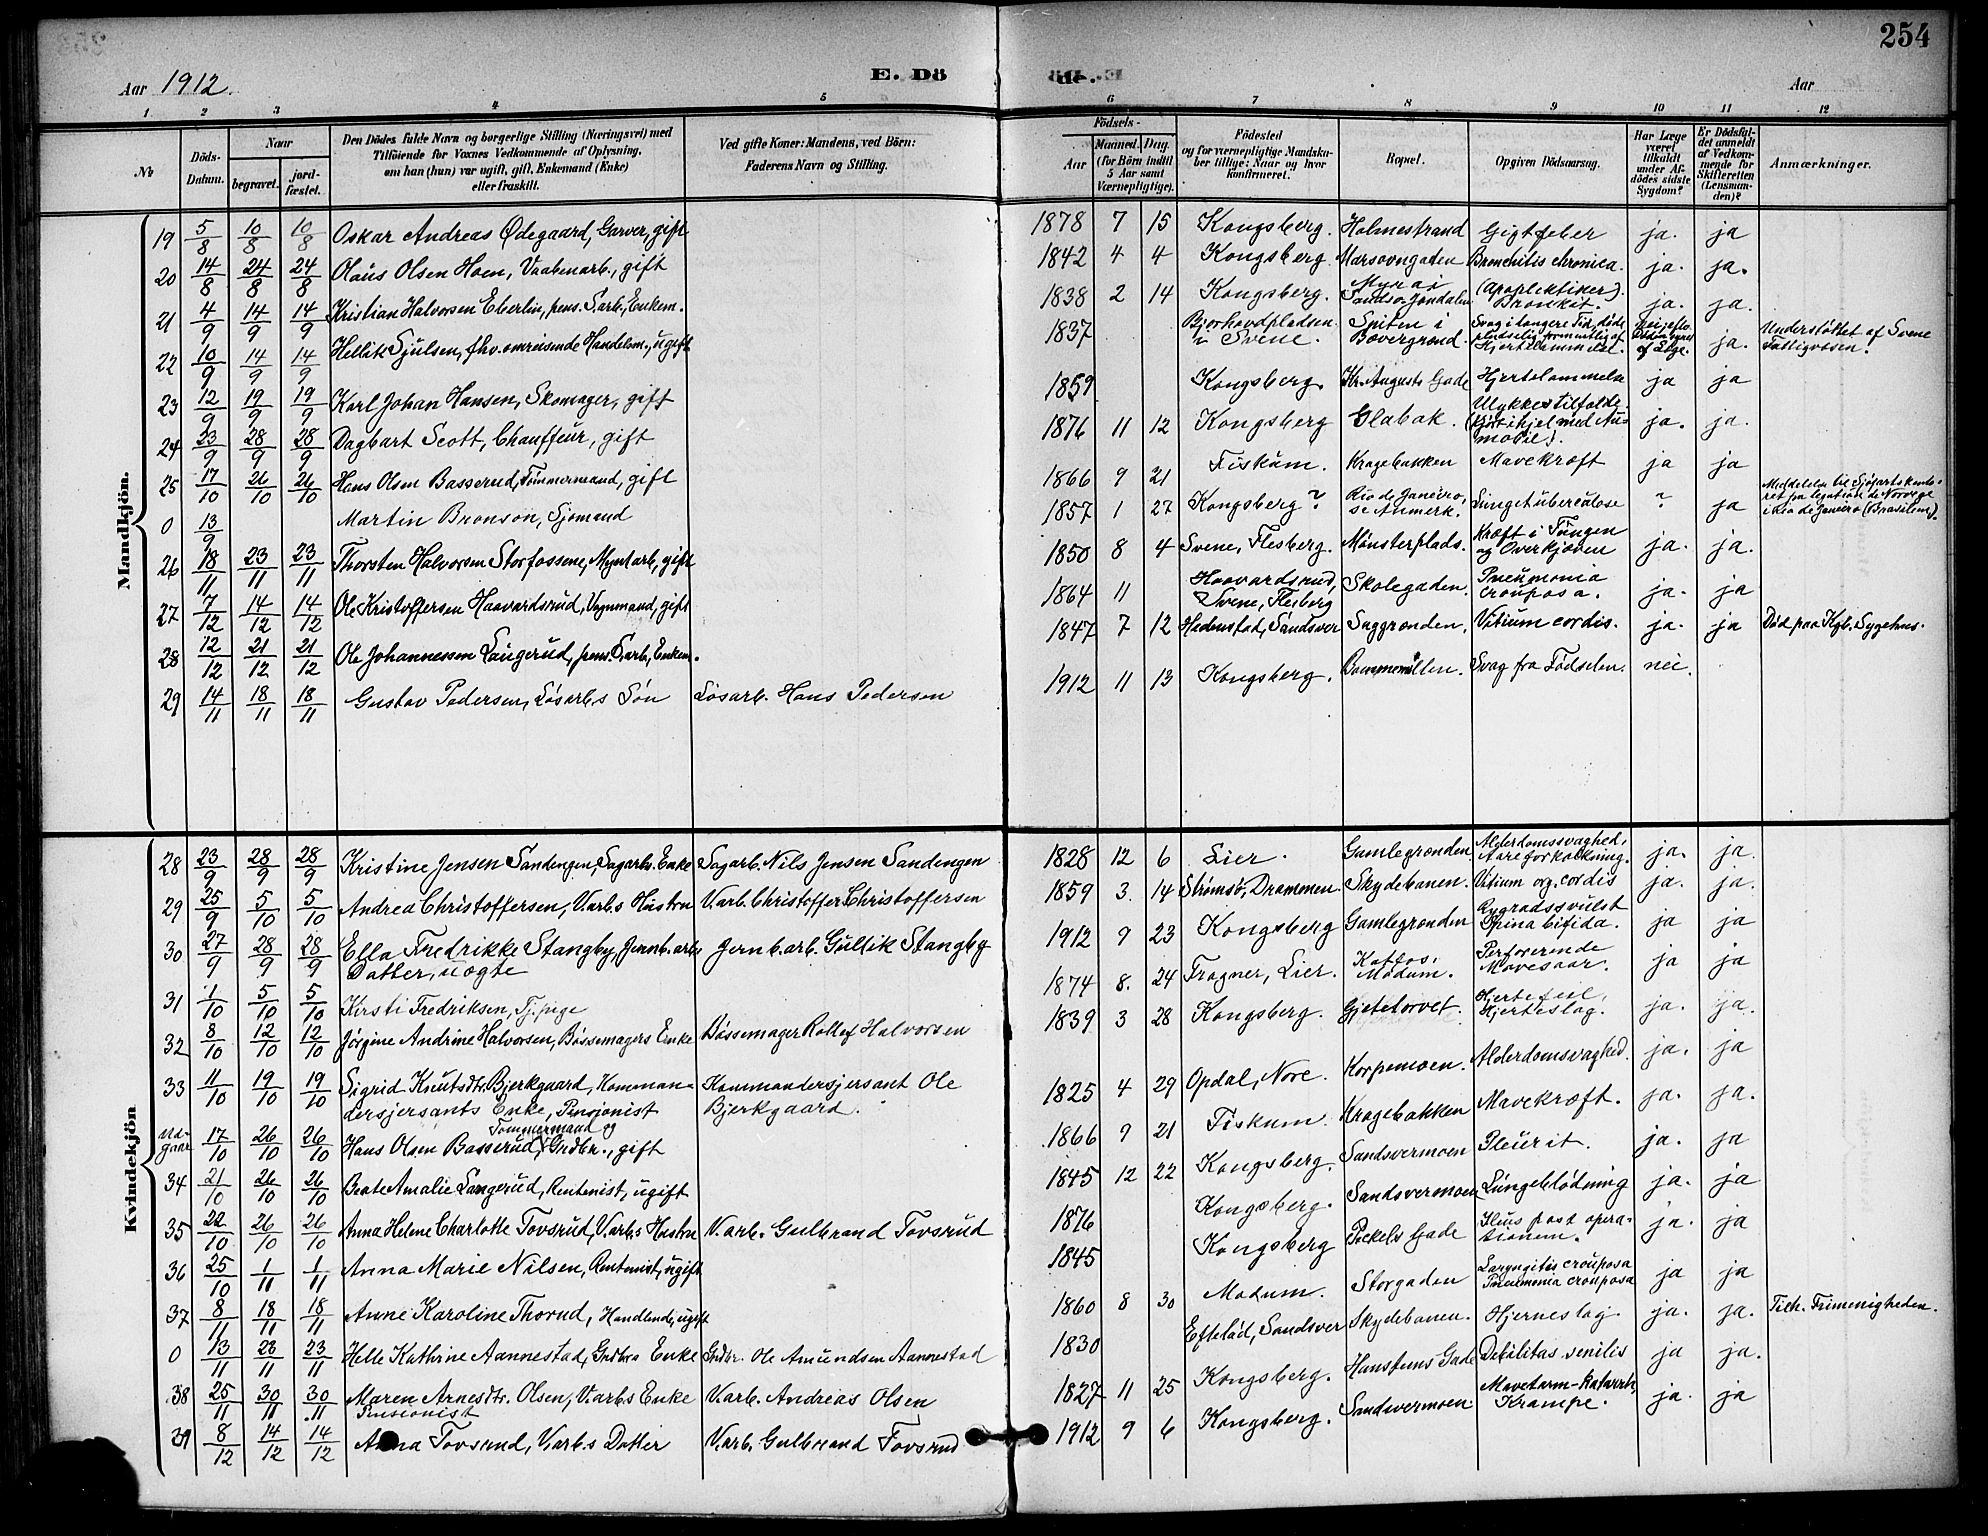 254
Aar 1912.
E. Dö
de.
Aar
1 2 3 4 5 6 7 8 9 10 11 12
No
Döds-Datum.
Naar
begravet.
jord-fæstet.
Den Dödes fulde Navn og borgerlige Stilling (Næringsvei) med
Tilföiende for Voxnes Vedkommende af Oplysning,
om han (hun) var ugift, gift, Enkemand (Enke)
eller fraskilt.
Ved gifte Koner: Mandens, ved Börn:
Faderens Navn og Stilling.
Födsels-
Aar
Maaned. Dag.
(for Börn indtil
5 Aar samt
Værnepligtige).
Födested
og for værnepligtige Mandska-
ber tillige: Naar og hvor
konfirmeret.
Bopæl.
Opgiven Dödsaarsag.
Har Læge
været
tilkaldt
under Af-
dödes sidste
Sygdom?
Er Dödsfal-
det anmeldt
af Vedkom-
mende for
Skifteretten
(Lensman-
den)?
Anmærkninger.
Mandkjön.
19 5/8 10/8 10/8 Oskar Andreas Ødegaard, Garver, gift 1878 7 15 Kongsberg. Holmestrand Gigtfeber ja. ja
20 14/8 24/8 24/8 Olaus Olsen Hoen, Vaabenarb., gift 1842 4 4 Kongsberg Marsovngaden Bronchitis chronica. ja. ja.
21 4/9 14/9 14/9 Kristian Halvorsen Eberlin, pens. Sarb., Enkem. 1838 2 14 Kongsberg. Myra i Sandsv. Jondalen (Apoplektiker). Bronkit ja. ja.
22 10/9 14/9 14/9 Hellik Sjulsen, fhv. omreisende Handelsm., ugift 1837 Bjørhovdpladsen i Svene. Spiten i Bævergrænd. Svag i længere Tid, døde pludselig, formentlig af Hjertelammelse. af Læge. ja. Understøttet af Svene Fattigvæsen.
23 12/9 19/9 19/9 Karl Johan Hansen, Skomager, gift 1859 Kongsberg. Kr. Augusts Gade Hjertelammelse ja ja
24 23/9 28/9 28/9 Dagbart Scott, Chauffeur, gift 1876 11 12 Kongsberg Glabak. Ulykkestilfælde (kjørt ihjel med Automobil). ja. ja.
25 17/10 26/10 26/10 Hans Olsen Basserud, Tømmermand, gift 1866 9 21 Fiskum. Kragebakken Mavekræft ja ja
0 13/9 Martin Bronson, Sjømand 1857 1 27 Kongsberg? Rio de Janeiro, se Anmerk. Lungetuberculose ? ja Meddelelse til Sjøfartskontoret fra legation de Norvege i Rio de Janeiro (Brasilien).
26 18/11 23/11 23/11 Thorsten Halvorsen Storfossene, Myntarb, gift 1850 8 4 Svene, Flesberg. Mønsterplads. Kræft i Tungen og Overkjæven ja. ja.
27 7/12 14/12 14/12 Ole Kristoffersen Haavardsrud, Vognmand, gift 1864 11 Haavardsrud, Svene, Flesberg Skolegaden. Pneumonia crouposa. ja. ja
28 12/12 21/12 21/12 Ole Johannessen Langerud, pens. Sarb., Enkem. 1847 7 12 Hedenstad, Sandsver Saggrænden. Vitium cordis. ja. ja Død paa Kgb. Sygehus.
29 14/11 18/11 18/11 Gustav Pedersen, Løsarb.s Søn Løsarb. Hans Pedersen 1912 11 13 Kongsberg. Svag fra Fødselen. nei.
Kvindekjön
28 23/9 28/9 28/9 Kristine Jensen Sandengen, Sagarbs. Enke Sagarb. Nils Jensen Sandengen 1828 12 6 Lier. Gamlegrænden Alderdomssvaghed, Aareforkalkning. ja. ja.
29 25/9 5/10 5/10 Andrea Christoffersen, V.arb.s Hustru V.arb. Christoffer Christoffersen 1859 3. 14 Strømsø, Drammen. Skydebanen. Vitium org. cordis ja. ja.
30 27/9 28/9 28/9 Ella Fredrikke Stangby, Jernb.arbs Datter, uægte Jernb.arb. Gullik Stangby 1912 9 23 Kongsberg Gamlegrænden Rygradssvulst Spina bifida. ja ja
31 1/10 5/10 5/10 Kirsti Fredriksen, Tj.pige 1874 8. 24 Fragner, Lier. Modum. Perforerende Mavesaar. ja ja
32 8/10 12/10 12/10 Jørgine Andrine Halvorsen, Bøssemagers Enke Bøssemager Rollef Halvorsen 1839 3 28 Kongsberg. Gjetetorvet. Hjertefeil, Hjerteslag. ja. ja.
33 11/10 19/10 19/10 Sigrid Knutsdtr. Bjerkgaard, Kommandersjersants Enke, Pensionist Kommandersjersant Ole Bjerkgaard. 1825 4 29 Opdal, Nore. Korpemoen. Alderdomsvaghed. ja. ja
Udgaar 17/10 26/10 26/10 Hans Olsen Basserud, Tømmermand og Grdbr., gift 1866 9 21 Fiskum. Kragebakken Mavekræft. ja. ja.
34 21/10 26/10 26/10 Beate Amalie Langerud, Rentenist, ugift 1845 12 22 Kongsberg. Sandsvermoen Pleurit. ja. ja
35 22/10 26/10 26/10 Anna Helene Charlotte Tovsrud, V.arb.s Hustru V.arb. Gulbrand Tovsrud 1876 Kongsberg. Sandsvermoen Lungeblødning ja. ja
36 25/10 1/11 1/11 Anna Marie Nilsen, Rentenist, ugift 1845 Kongsberg Peckels Gade Ileus post operationem. ja. ja
37 8/11 18/11 18/11 Anne Karoline Thorud, Handlende, ugift 1860 8 30 Modum. Storgaden Laryngitis crouposa Pneumonia crouposa ja ja
0 13/11 23/11 23/11 Helle Kathrine Aannestad, Grdbrs Enke Grdbr. Ole Amundsen Aannestad 1830 Efteløt, Sandsver Skydebanen. Hjerneslag ja. ja. Tilh. Frimenigheden.
38 25/11 30/11 30/11 Maren Arnesdtr. Olsen, V.arb.s Enke Pensionist V.arb. Andreas Olsen 1827 11 25 Kongsberg. Hansteens Gade Debilitas senilis ja ja.
39 8/12 14/12 14/12 Anna Tovsrud, V.arb.s Datter V.arb. Gulbrand Tovsrud 1912 9 6 Kongsberg. Sandsvermoen Mavetarm-katarrh, Krampe. ja. ja